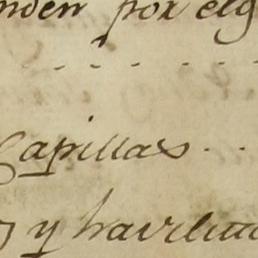 nden por el g
Capillas . .
y havilita